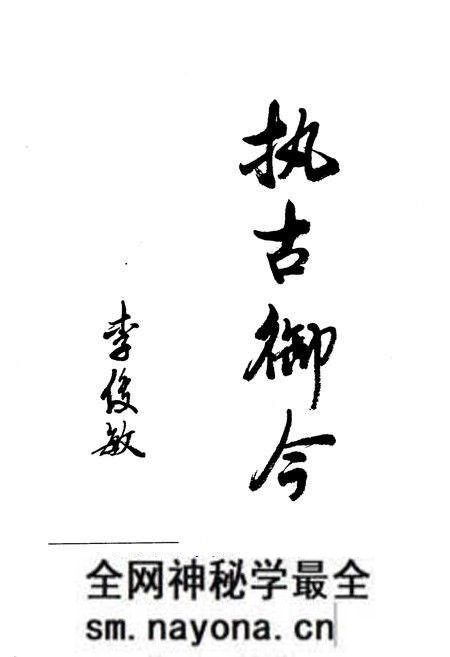 执古御今
李俊敏
全网神秘学最全
sm.nayona.cn